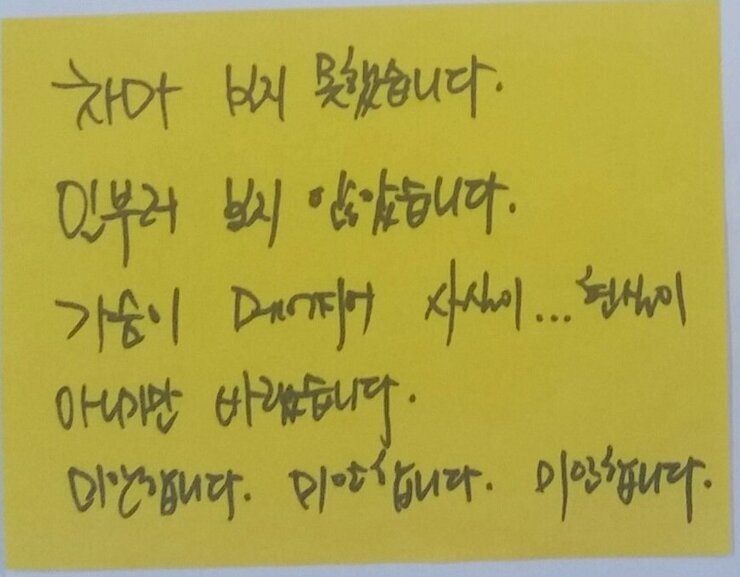 차마 보지 못했습니다.
일부러 보지 않았습니다.
가슴이 메어지어 사실이... 현실이
아니기만 바랬습니다.
미안합니다. 미안합니다. 미안합니다.